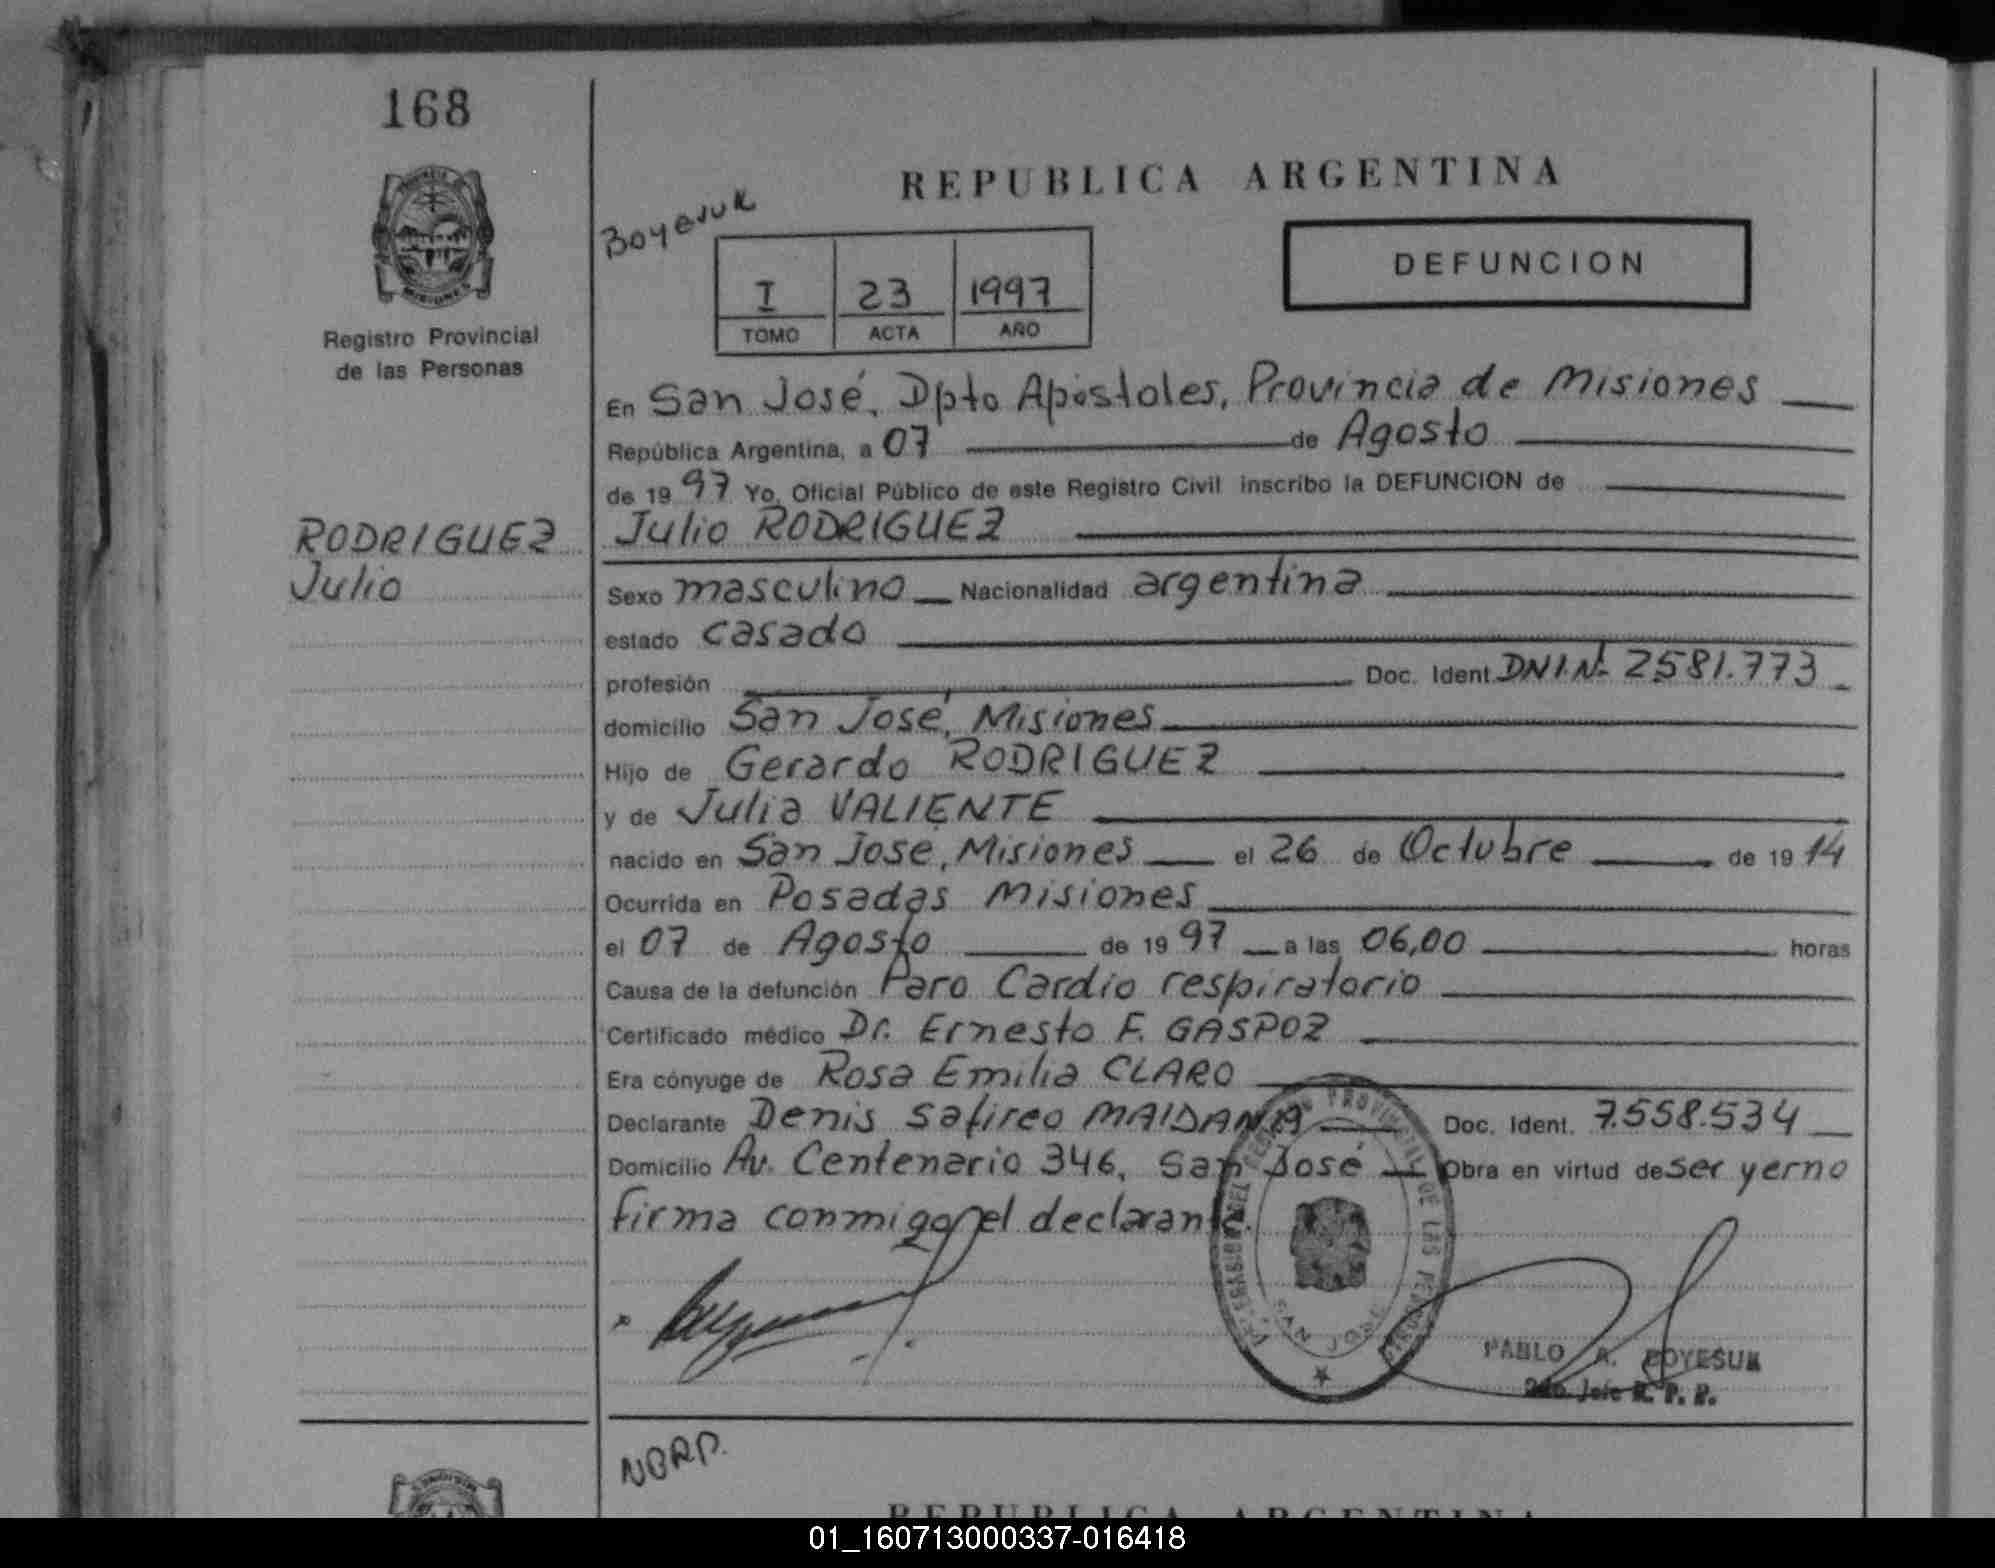 168
REPUBLICA ARGENTINA
Boyesuk
DEFUNCION
I 23 1997
TOMO ACTA AÑO
MISIONES
Registro Provincial
de las Personas
En San José, Dpto Apóstoles, Provincia de Misiones
República Argentina, a 07 de Agosto
de 1997 Yo, Oficial Público de este Registro Civil inscribo la DEFUNCION de
RODRIGUEZ
Julio
Julio RODRIGUEZ
Sexo masculino Nacionalidad argentina
estado casado
profesión Doc. Ident. DNI.Nº 2581.773
domicilio San José, Misiones
Hijo de Gerardo RODRIGUEZ
y de Julia VALIENTE
nacido en San José, Misiones el 26 de Octubre de 1914
Ocurrida en Posadas Misiones
el 07 de Agosto de 1997 a las 06,00 horas
Causa de la defunción Paro Cardio respiratorio
Certificado médico Dr. Ernesto F. GASPOZ
Era cónyuge de Rosa Emilia CLARO
Declarante Denis Safireo MAIDANA Doc. Ident. 7.558.534
Domicilio Av. Centenario 346, San José Obra en virtud de ser yerno
firma conmigo el declarante.
DEL REGISTRO PROVINCIAL DE LAS PERSONAS
SAN JOSE
PABLO A. BOYESUK
2do. Jefe R. P. P.
REPUBLICA ARGENTINA
01_160713000337-016418